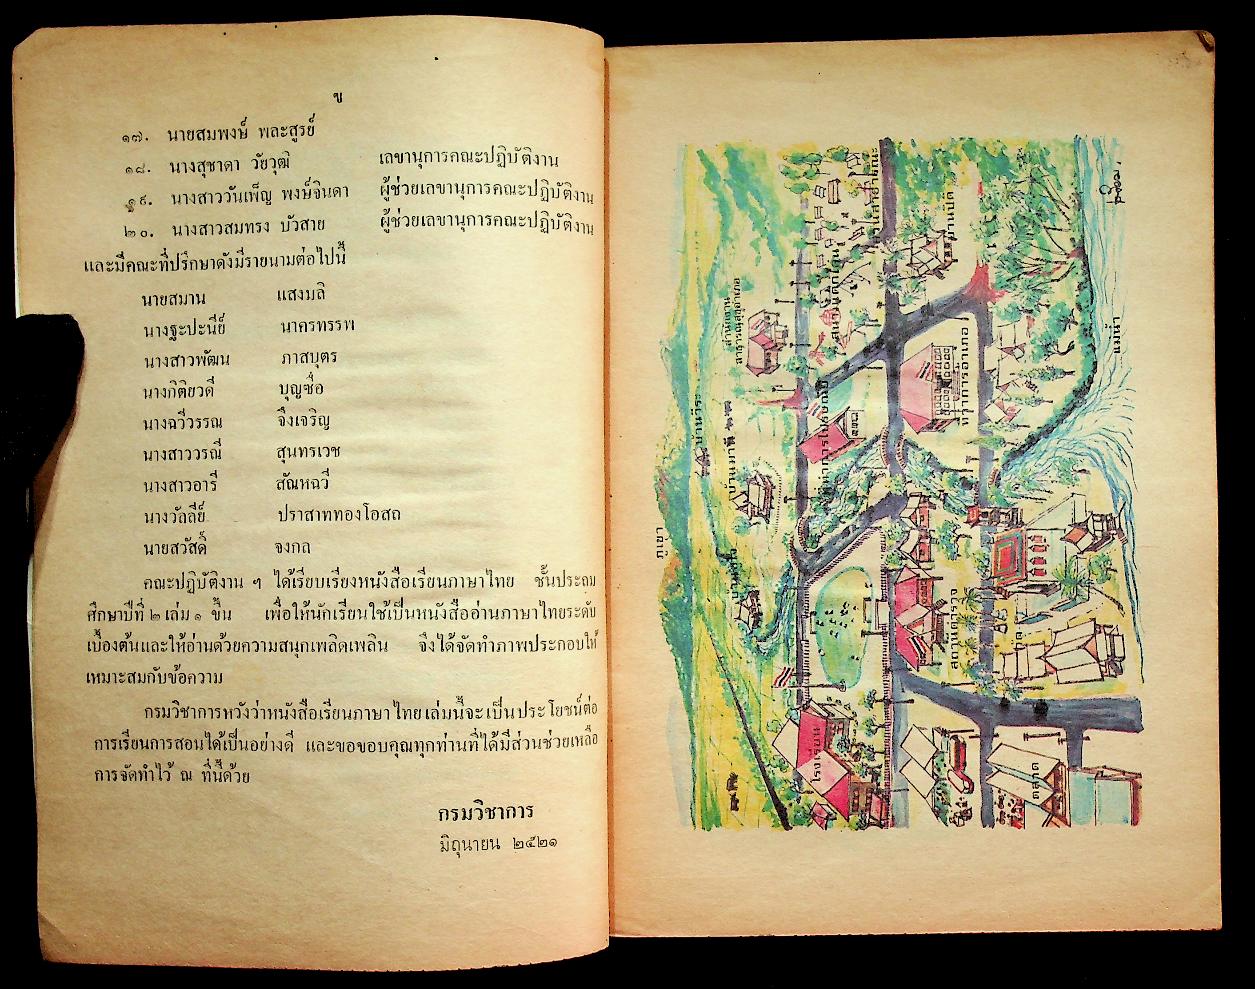 ข
๑๗. นายสมพงษ์ พละสูรย์
๑๘. นางสุชาดา วัยวุฒิ เลขานุการคณะปฏิบัติงาน
๑๙. นางสาววันเพ็ญ พงษ์จินดา ผู้ช่วยเลขานุการคณะปฏิบัติงาน
๒๐. นางสาวสมทรง บัวสาย ผู้ช่วยเลขานุการคณะปฏิบัติงาน
และมีคณะที่ปรึกษาดังมีรายนามต่อไปนี้
นายสมาน แสงมลิ
นางฐะปะนีย์ นาครทรรพ
นางสาวพัฒน ภาสบุตร
นางกิติยวดี บุญซื่อ
นางฉวีวรรณ จึงเจริญ
นางสาววรณี สุนทรเวช
นางสาวอารี สัณหฉวี
นางวัลลีย์ ปราสาททองโอสถ
นายสวัสดิ์ จงกล
คณะปฏิบัติงาน ฯ ได้เรียบเรียงหนังสือเรียนภาษาไทย ชั้นประถม
ศึกษาปีที่ ๒ เล่ม ๑ ขึ้น เพื่อให้นักเรียนใช้เป็นหนังสืออ่านภาษาไทยระดับ
เบื้องต้นและให้อ่านด้วยความสนุกเพลิดเพลิน จึงได้จัดทำภาพประกอบให้
เหมาะสมกับข้อความ
กรมวิชาการหวังว่าหนังสือเรียนภาษาไทยเล่มนี้จะเป็นประโยชน์ต่อ
การเรียนการสอนได้เป็นอย่างดี และขอขอบคุณทุกท่านที่ได้มีส่วนช่วยเหลือ
การจัดทำไว้ ณ ที่นี้ด้วย
กรมวิชาการ
มิถุนายน ๒๕๒๑
ภูเขา
สำนักงาน
สาธารณสุขอำเภอ
บ้านมานี
ที่ทำการไปรษณีย์
สนามเด็กเล่น
ที่ว่าการอำเภอ
สถานีตำรวจ
โรงเรียน
ตลาด
แม่น้ำ